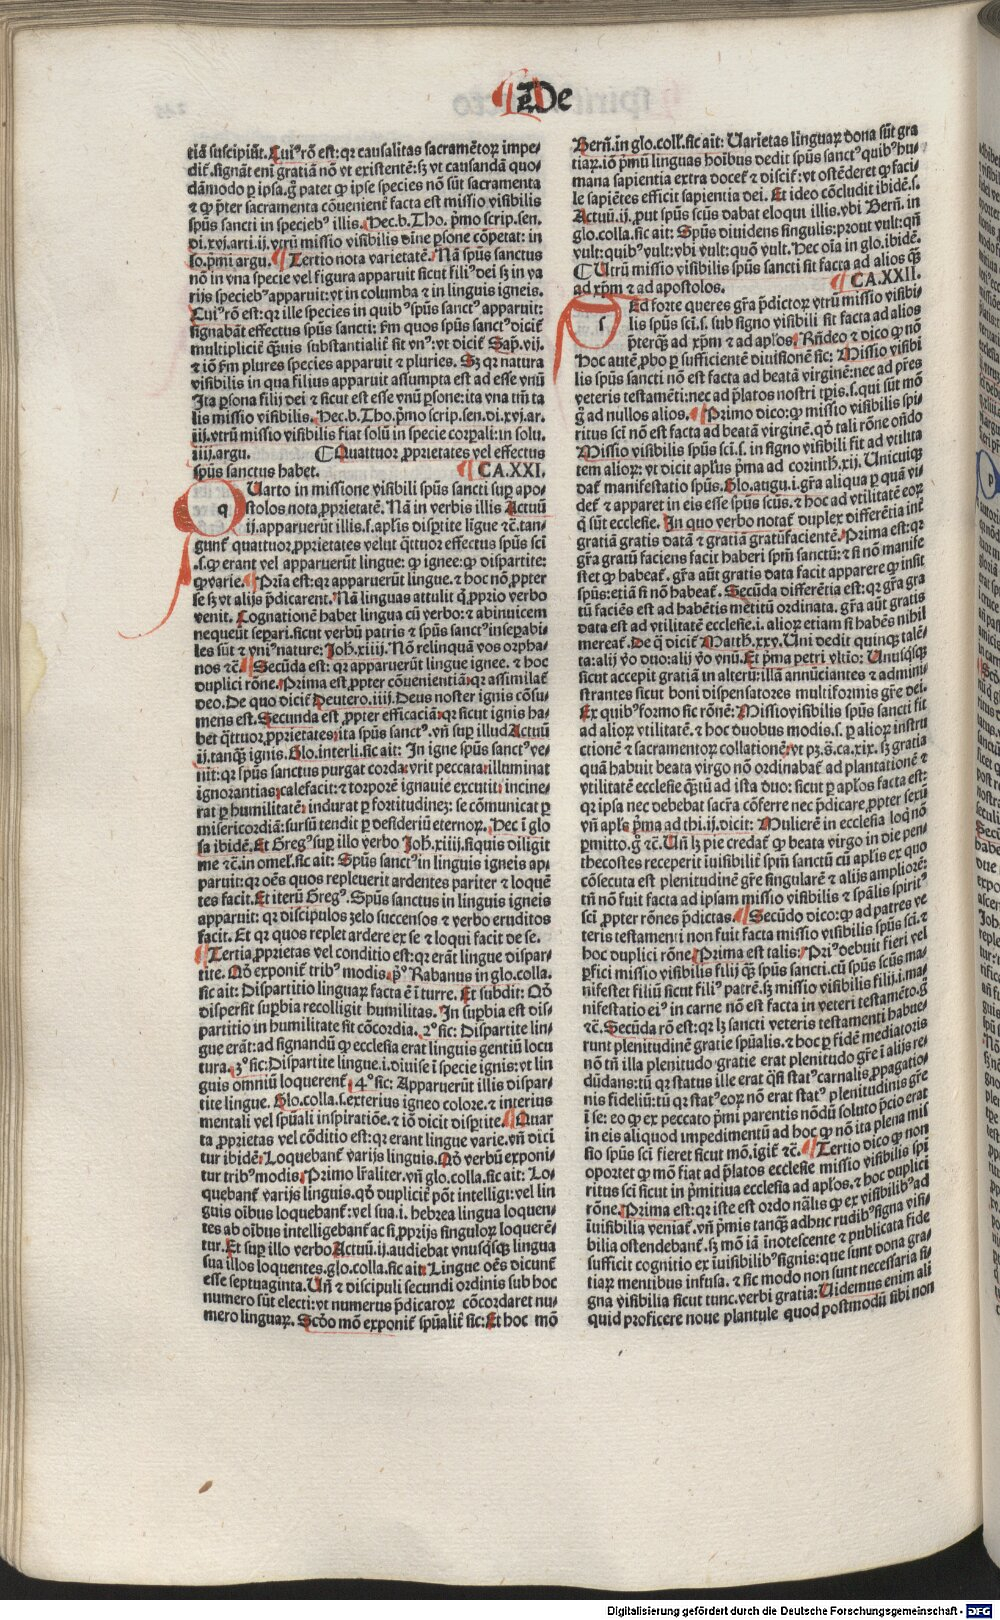 De
tiā suscipiūt. Cuiꝰ rō est: qꝛ causalitas sacramētoꝝ impe⸗
dit̄. signāt eni gratiā nō vt existentē: sꝫ vt causandā quo⸗
dāmodo ꝑ ipsa. g̊ patet ꝙ ipse species nō sūt sacramenta
⁊ ꝙ p̄ter sacramenta cōuenient̄ facta est missio visibilis
spūs sancti in speciebꝰ illis. Hec.b.Tho. p̄mo scrip.sen.
di.xvj.arti.ij. vtrū missio visibilis diīne ꝑsone cōpetat: in
so.p̄mi argu. Tertio nota varietatē. Nā spūs sanctus
nō in vna specie vel figura apparuit sicut filiꝰ dei sꝫ in va
rijs speciebꝰ apparuit: vt in columba ⁊ in linguis igneis.
Cuiꝰ rō est: qꝛ ille species in quibꝰ spūs sanctꝰ apparuit:
signabāt effectus spūs sancti: fm quos spūs sanctꝰ dicit̄
multiplicit̄ q̄uis substantialit̄ sit vnꝰ: vt dicit̄ Sap̄.vij.
⁊ iō fm plures species apparuit ⁊ pluries. Sꝫ qꝛ natura
visibilis in qua filius apparuit assumpta est ad esse vnū
Ita ꝑsona filij dei ⁊ sicut est esse vnū ꝑsone: ita vna tm̄ ta
lis missio visibilis. Hec.b.Tho.p̄mo scrip.sen.di.xvj.ar.
iij. vtrū missio visibilis fiat solū in specie corꝑali: in solu.
iiij.argu. Quattuor ꝓprietates vel effectus
spūs sanctus habet. CA.XXI.
q Uarto in missione visibili spūs sancti suꝑ apo⸗
stolos nota ꝓprietatē. Nā in verbis illis Actuū
ij. apparuerūt illis.s.aplīs disꝑtite līgue ⁊c̄. tan⸗
gunt̄ quattuor ꝓprietates velut q̄ttuor effectus spūs sci
.s.ꝙ erant vel apparuerūt lingue: ꝙ ignee: ꝙ disꝑtite:
ꝙ varie. Prīa est: qꝛ apparuerūt lingue. ⁊ hoc nō ꝓpter
se sꝫ vt alijs p̄dicarent. Nā linguas attulit q̄ ꝓpio verbo
venit. Cognationē habet lingua cū verbo: ⁊ abinuicem
nequeūt separi. sicut verbū patris ⁊ spūs sanctꝰ inseꝑabi⸗
les sūt ⁊ vniꝰ nature: Joh.xiiij. Nō relinquā vos orpha⸗
nos ⁊c̄. Secūda est: qꝛ apparuerūt lingue ignee. ⁊ hoc
duplici rōne. Prima est ꝓpter cōuenientiā: qꝛ assimilat̄
deo. De quo dicit̄ Deutero.iiij. Deus noster ignis cōsu⸗
mens est. Secunda est ꝓpter efficaciā: qꝛ sicut ignis ha⸗
bet q̄ttuor ꝓprietates: ita spūs sanctꝰ. vn̄ suꝑ illud Actuū
ij. tanq̄ꝫ ignis. Glo.interli.sic ait: In igne spūs sanctꝰ ve⸗
nit: qꝛ spūs sanctus purgat corda: vrit peccata: illuminat
ignorantias: calefacit: ⁊ torporē ignauie excutit: incine⸗
rat ꝑ humilitatē: indurat ꝑ fortitudinez: se cōmunicat ꝑ
misericordiā: sursū tendit ꝑ desideriū eternoꝝ. Hec ī glo
sa ibidē. Et Gregꝰ suꝑ illo verbo Joh.xiiij. siquis diligit
me ⁊c̄. in omel̄. sic ait: Spūs sanctꝰ in linguis igneis ap⸗
paruit: qꝛ oēs quos repleuerit ardentes pariter ⁊ loquē⸗
tes facit. Et iterū Gregꝰ. Spūs sanctus in linguis igneis
apparuit: qꝛ discipulos zelo succensos ⁊ verbo eruditos
facit. Et qꝛ quos replet ardere ex se ⁊ loqui facit de se.
Tertia ꝓprietas vel conditio est: qꝛ erāt lingue dispar⸗
tite. Qd̄ exponit̄ tribꝰ modis. p̄ͦ Rabanus in glo.colla.
sic ait: Dispartitio linguaꝝ facta ē ī turre. Et subdit: Qd̄
dispersit suꝑbia recolligit humilitas. In suꝑbia est dis⸗
partitio in humilitate fit cōcordia. 2ͦ sic: Dispartite lin⸗
gue erāt: ad signandū ꝙ ecclesia erat linguis gentiū locu
tura. 3ͦ sic: Dispartite lingue .i. diuise ī specie ignis: vt lin
guis omniū loquerent̄. 4ͦ sic: Apparuerūt illis dispar⸗
tite lingue. Glo.colla.s.exterius igneo colore. ⁊ interius
mentali vel spūali inspiratiōe. ⁊ iō dicit disꝑtite. Quar
ta ꝓprietas vel cōditio est: qꝛ erant lingue varie. vn̄ dici
tur ibidē: Loquebant̄ varijs linguis. Qd̄ verbū exponi⸗
tur tribꝰ modis. Primo lr̄aliter. vn̄ glo.colla.sic ait: Lo⸗
quebant̄ varijs linguis. qd̄ duplicit̄ pōt intelligi: vel lin
guis oībus loquebant̄: vel sua .i. hebrea lingua loquen⸗
tes ab oībus intelligebant̄ ac si ꝓprijs singuloꝝ loquerē⸗
tur. Et suꝑ illo verbo Actuū.ij. audiebat vnusq̄sq̄ꝫ lingua
sua illos loquentes. glo.colla.sic ait: Lingue oēs dicunt̄
esse septuaginta. Un̄ ⁊ discipuli secundi ordinis sub hoc
numero sūt electi: vt numerus p̄dicatoꝝ cōcordaret nu⸗
mero linguaꝝ. Scd̄o mō exponit̄ spūalit̄ sic: Et hoc mō
Bern̄. in glo.coll̄. sic ait: Uarietas linguaꝝ dona sūt gra
tiaꝝ. iō p̄mū linguas hoībus dedit spūs sanctꝰ quibꝰ hu⸗
mana sapientia extra docet̄ ⁊ discit̄: vt ostēderet ꝙ faci⸗
le sapiētes efficit sapientia dei. Et ideo cōcludit ibidē.s.
Actuū.ij. ꝓut spūs scūs dabat eloqui illis. vbi Bern̄. in
glo.colla.sic ait: Spūs diuidens singulis: prout vult: qn̄
vult: quibꝰ vult: vbi vult: quō vult. Hec oīa in glo.ibidē.
Utrū missio visibilis spūs sancti sit facta ad alios q̄ꝫ
ad xp̄m ⁊ ad apostolos. CA.XXII.
s Ed forte queres gr̄a p̄dictoꝝ vtrū missio visibi⸗
lis spūs sci.s. sub signo visibili sit facta ad alios
p̄terq̄ꝫ ad xp̄m ⁊ ad aplos. Rn̄deo ⁊ dico ꝙ nō
Hoc autē ꝓbo ꝑ sufficientē diuisionē sic: Missio visibi
lis spūs sancti nō est facta ad beatā virginē: nec ad pr̄es
veteris testamēti: nec ad p̄latos nostri tꝑis.s. qui sūt mō
g̊ ad nullos alios. Primo dico: ꝙ missio visibilis spi⸗
ritus sci nō est facta ad beatā virginē. qd̄ tali rōne on̄do
Missio visibilis spūs sci.s. in signo visibili fit ad vtilita
tem alioꝝ: vt dicit aplūs p̄ma ad corinth.xij. Unicuiqꝫ
dat̄ manifestatio spūs. Glo.augu.i.gr̄a aliqua ꝑ quā vi⸗
det̄ ⁊ apparet in eis esse spūs scūs. ⁊ hoc ad vtilitatē eoꝝ
q̄ sūt ecclesie. In quo verbo notat̄ duplex differētia int̄
gratiā gratis datā ⁊ gratiā gratūfacientē. Prima est: qꝛ
gr̄a gratū faciens facit haberi spm̄ sanctū: ⁊ si nō manife
stet ꝙ habeat̄. gr̄a aūt gratis data facit apparere ꝙ insit
spūs: etiā si nō habeat̄. Secūda differētia est: qꝛ gr̄a gra
tū faciēs est ad habētis meritū ordinata. gr̄a aūt gratis
data est ad vtilitatē ecclesie .i. alioꝝ etiam si habēs nihil
mereat̄. De q̄ dicit̄ Matth.xxv. Uni dedit quinqꝫ talē⸗
ta: alij v̄o duo: alij v̄o vnū. Et p̄ma petri vltio: Unusq̄sq̄ꝫ
sicut accepit gratiā in alterū: illā annūciantes ⁊ admini⸗
strantes sicut boni dispensatores multiformis gr̄e dei.
Ex quibꝰ formo sic rōnē: Missio visibilis spūs sancti fit
ad alioꝝ vtilitatē. ⁊ hoc duobus modis.s. ꝑ alioꝝ instru
ctionē ⁊ sacramentoꝝ collationē: vt pꝫ.s̄.ca.xix. sꝫ gratia
quā habuit beata virgo nō ordinabat̄ ad plantationē ⁊
vtilitatē ecclesie q̄ꝫtū ad ista duo: sicut ꝑ aplos facta est:
qꝛ ipsa nec debebat sacr̄a cōferre nec p̄dicare ꝓpter sexū
vn̄ apl̄s p̄ma ad thi.ij. dicit: Mulierē in ecclesia loq̄ nō
ꝑmitto. g̊ ⁊c̄. Un̄ lꝫ pie credat̄ ꝙ beata virgo in die pen⸗
thecostes receperit īuisibilit̄ spm̄ sanctū cū aplīs ex quo
cōsecuta est plenitudinē gr̄e singularē ⁊ alijs ampliorē:
tn̄ nō fuit facta ad ipsam missio visibilis ⁊ spālis spiritꝰ
sci ꝓpter rōnes p̄dictas. Secūdo dico: ꝙ ad patres ve
teris testamenti non fuit facta missio visibilis spūs sci. ⁊
hoc duplici rōne. Prima est talis: Priꝰ debuit fieri vel
ꝑfici missio visibilis filij q̄ꝫ spūs sancti. cū spūs scūs ma⸗
nifestet filiū sicut filiꝰ patrē. sꝫ missio visibilis filij .i. ma⸗
nifestatio eiꝰ in carne nō est facta in veteri testamēto. g̊
⁊c̄. Secūda rō est: qꝛ lꝫ sancti veteris testamenti habue⸗
runt plenitudinē gratie spūalis. ⁊ hoc ꝑ fidē mediatoris
nō tn̄ illa plenitudo gratie erat plenitudo gr̄e ī alijs re⸗
dūdans: tū qꝛ status ille erat q̄si statꝰ carnalis ꝓpagatio⸗
nis fideliū: tū qꝛ statꝰ eoꝝ nō erat statꝰ plenitudinis gr̄e
ī se: eo ꝙ ex peccato p̄mi parentis nōdū soluto p̄cio erat
in eis aliquod impedimentū ad hoc ꝙ nō ita plena mis
sio spūs sci fieret sicut mō. igit̄ ⁊c̄. Tertio dico ꝙ non
oportet ꝙ mō fiat ad p̄latos ecclesie missio visibilis spi
ritus sci sicut in p̄mitiua ecclesia ad aplos. ⁊ hoc duplici
rōne. Prima est: qꝛ iste est ordo nālis ꝙ ex visibilibꝰ ad
īuisibilia veniat̄. vn̄ p̄mis tanq̄ꝫ adhuc rudibꝰ signa visi⸗
bilia ostendebant̄. sꝫ mō iā īnotescente ⁊ publicata fide
sufficit cognitio ex īuisibilibꝰ signis: que sunt dona gra⸗
tiaꝝ mentibus infusa. ⁊ sic modo non sunt necessaria si⸗
gna visibilia sicut tunc. verbi gratia: Uidemus enim ali
quid proficere noue plantule quod postmodū sibi non
Digitalisierung gefördert durch die Deutsche Forschungsgemeinschaft - DFG